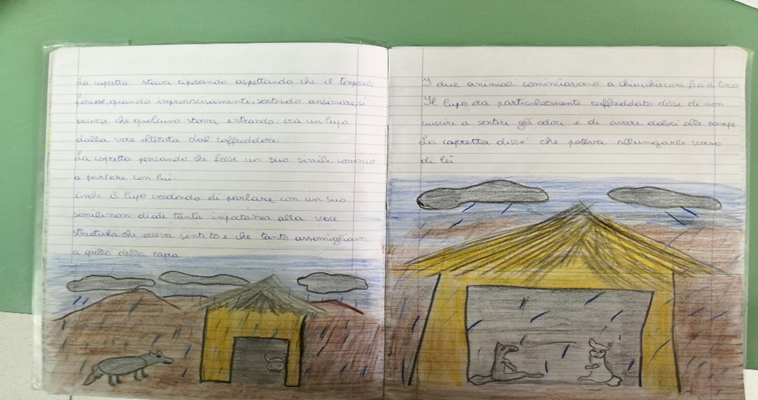 La capretta stava riposando aspettando che il temporale
finisse, quando improvvisamente, sentendo ansimare, si
accorse che qualcuno stava entrando: era un lupo
dalla voce alterata dal raffreddore.
La capretta pensando che fosse un suo simile cominciò
a parlare con lui.
Anche il lupo credendo di parlare con un suo
simile non diede tanta importanza alla voce
stridula che aveva sentito e che tanto assomigliava
a quella della capra.
I due animali cominciarono a chiacchierare fra di loro
Il lupo era particolarmente raffreddato disse di non
riuscire a sentire gli odori e di avere dolori alle zampe
La capretta disse che poteva allungarle verso
di lei